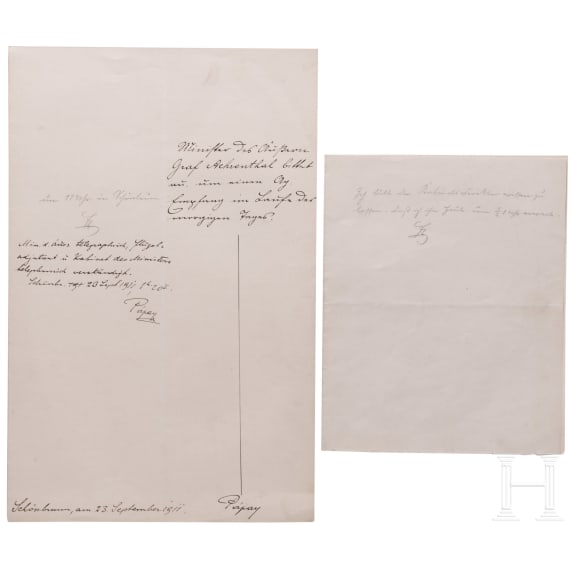 Minister des Äußern
Graf Aehrenthal bittet
au. um einen Ag
Empfang im Laufe des
morgigen Tages.
um 11 Uhr in Schönbrunn
Min. d. Äuss. telegraphisch, Flügel-
adjutant u Kabinet des Ministers
telephonisch verständigt.
23 Sept 1911
Pápay
Schönbrunn, am 23. September 1911.
Pápay
Ich bitte den zu
lassen, daß ich ihn heute um
H